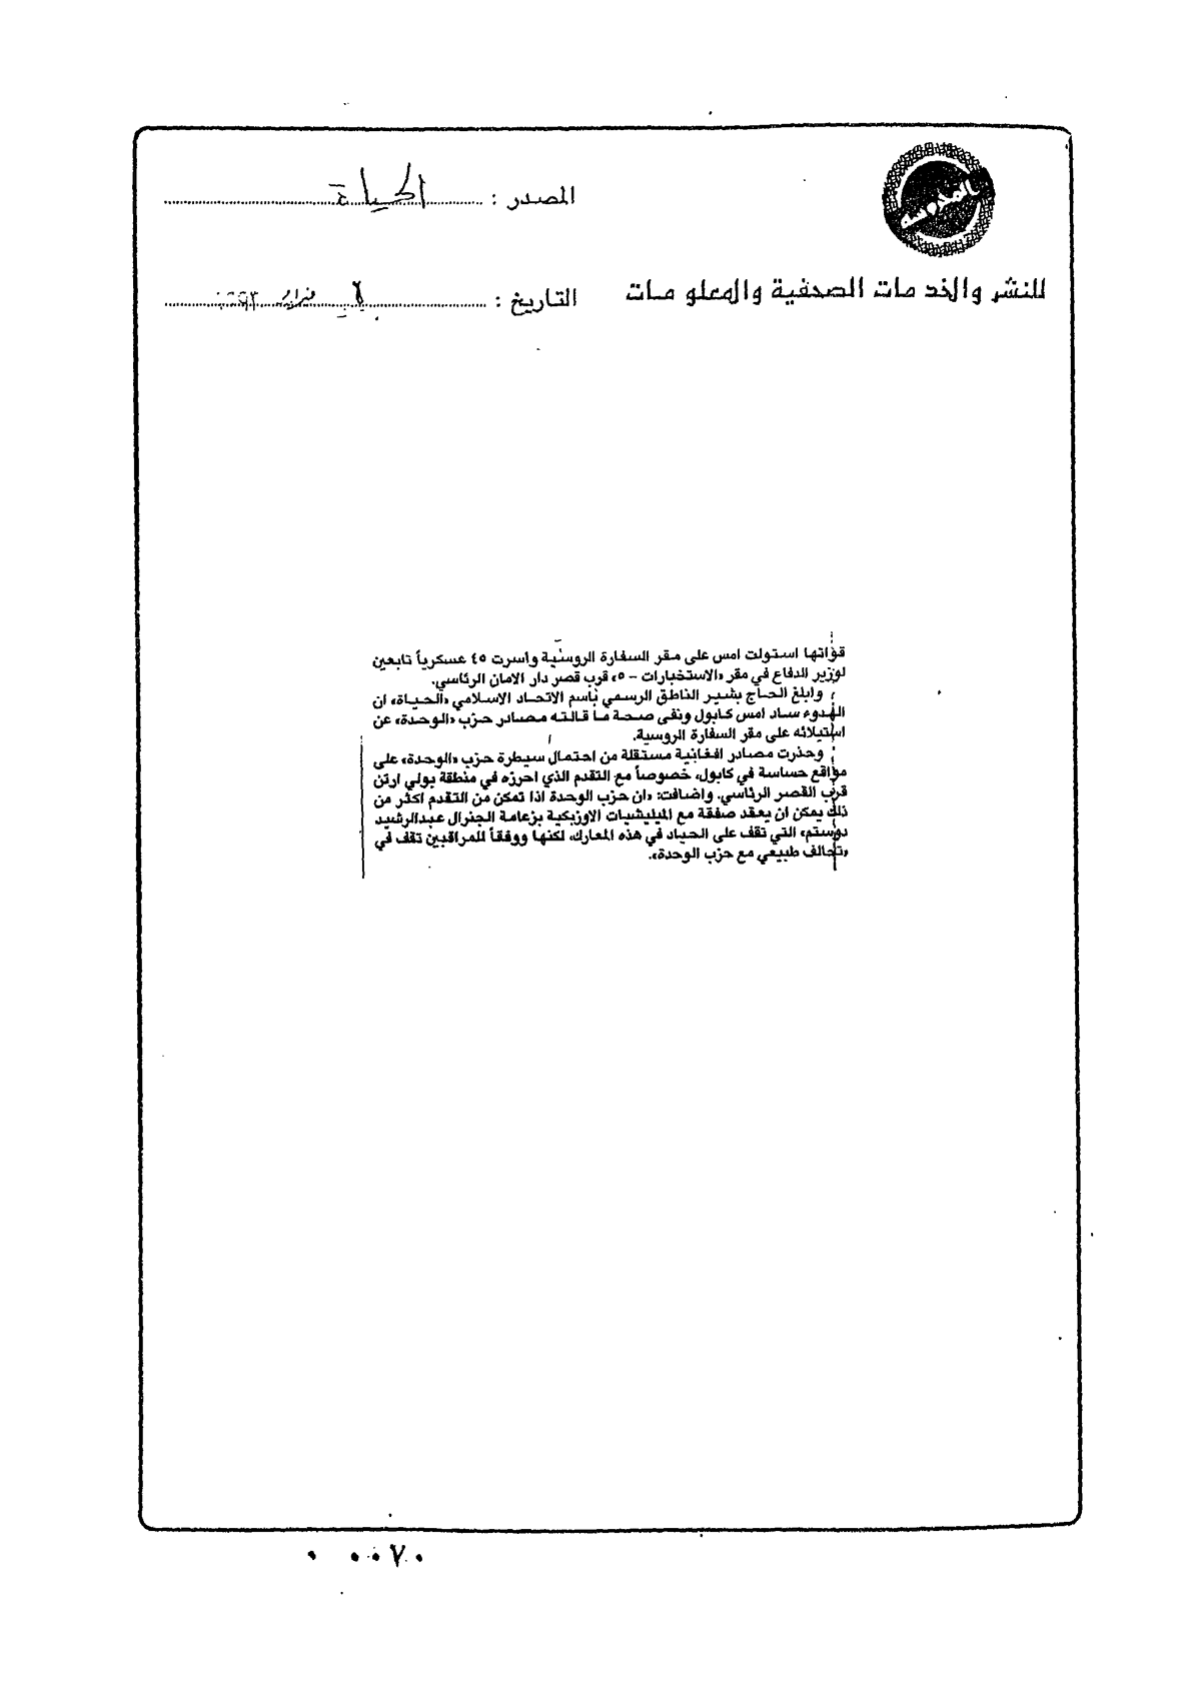 المصدر : الحياة
للنشر والخدمات الصحفية والمعلومات
التاريخ : فبراير
قواتها استولت امس على مقر السفارة الروسية واسرت ٤٥ عسكرياً تابعين
لوزير الدفاع في مقر «الاستخبارات - ٥» قرب قصر دار الامان الرئاسي.
وابلغ الحاج بشير الناطق الرسمي باسم الاتحاد الاسلامي «الحياة» ان
الهدوء ساد امس كابول ونفى صحة ما قالته مصادر حزب «الوحدة» عن
استيلائه على مقر السفارة الروسية.
وحذرت مصادر افغانية مستقلة من احتمال سيطرة حزب «الوحدة» على
مواقع حساسة في كابول، خصوصاً مع التقدم الذي احرزه في منطقة بولي ارتن
قرب القصر الرئاسي. واضافت: «ان حزب الوحدة اذا تمكن من التقدم اكثر من
ذلك يمكن ان يعقد صفقة مع الميليشيات الاوزبكية بزعامة الجنرال عبدالرشيد
دوستم» التي تقف على الحياد في هذه المعارك، لكنها ووفقاً للمراقبين تقف في
«تحالف طبيعي مع حزب الوحدة».